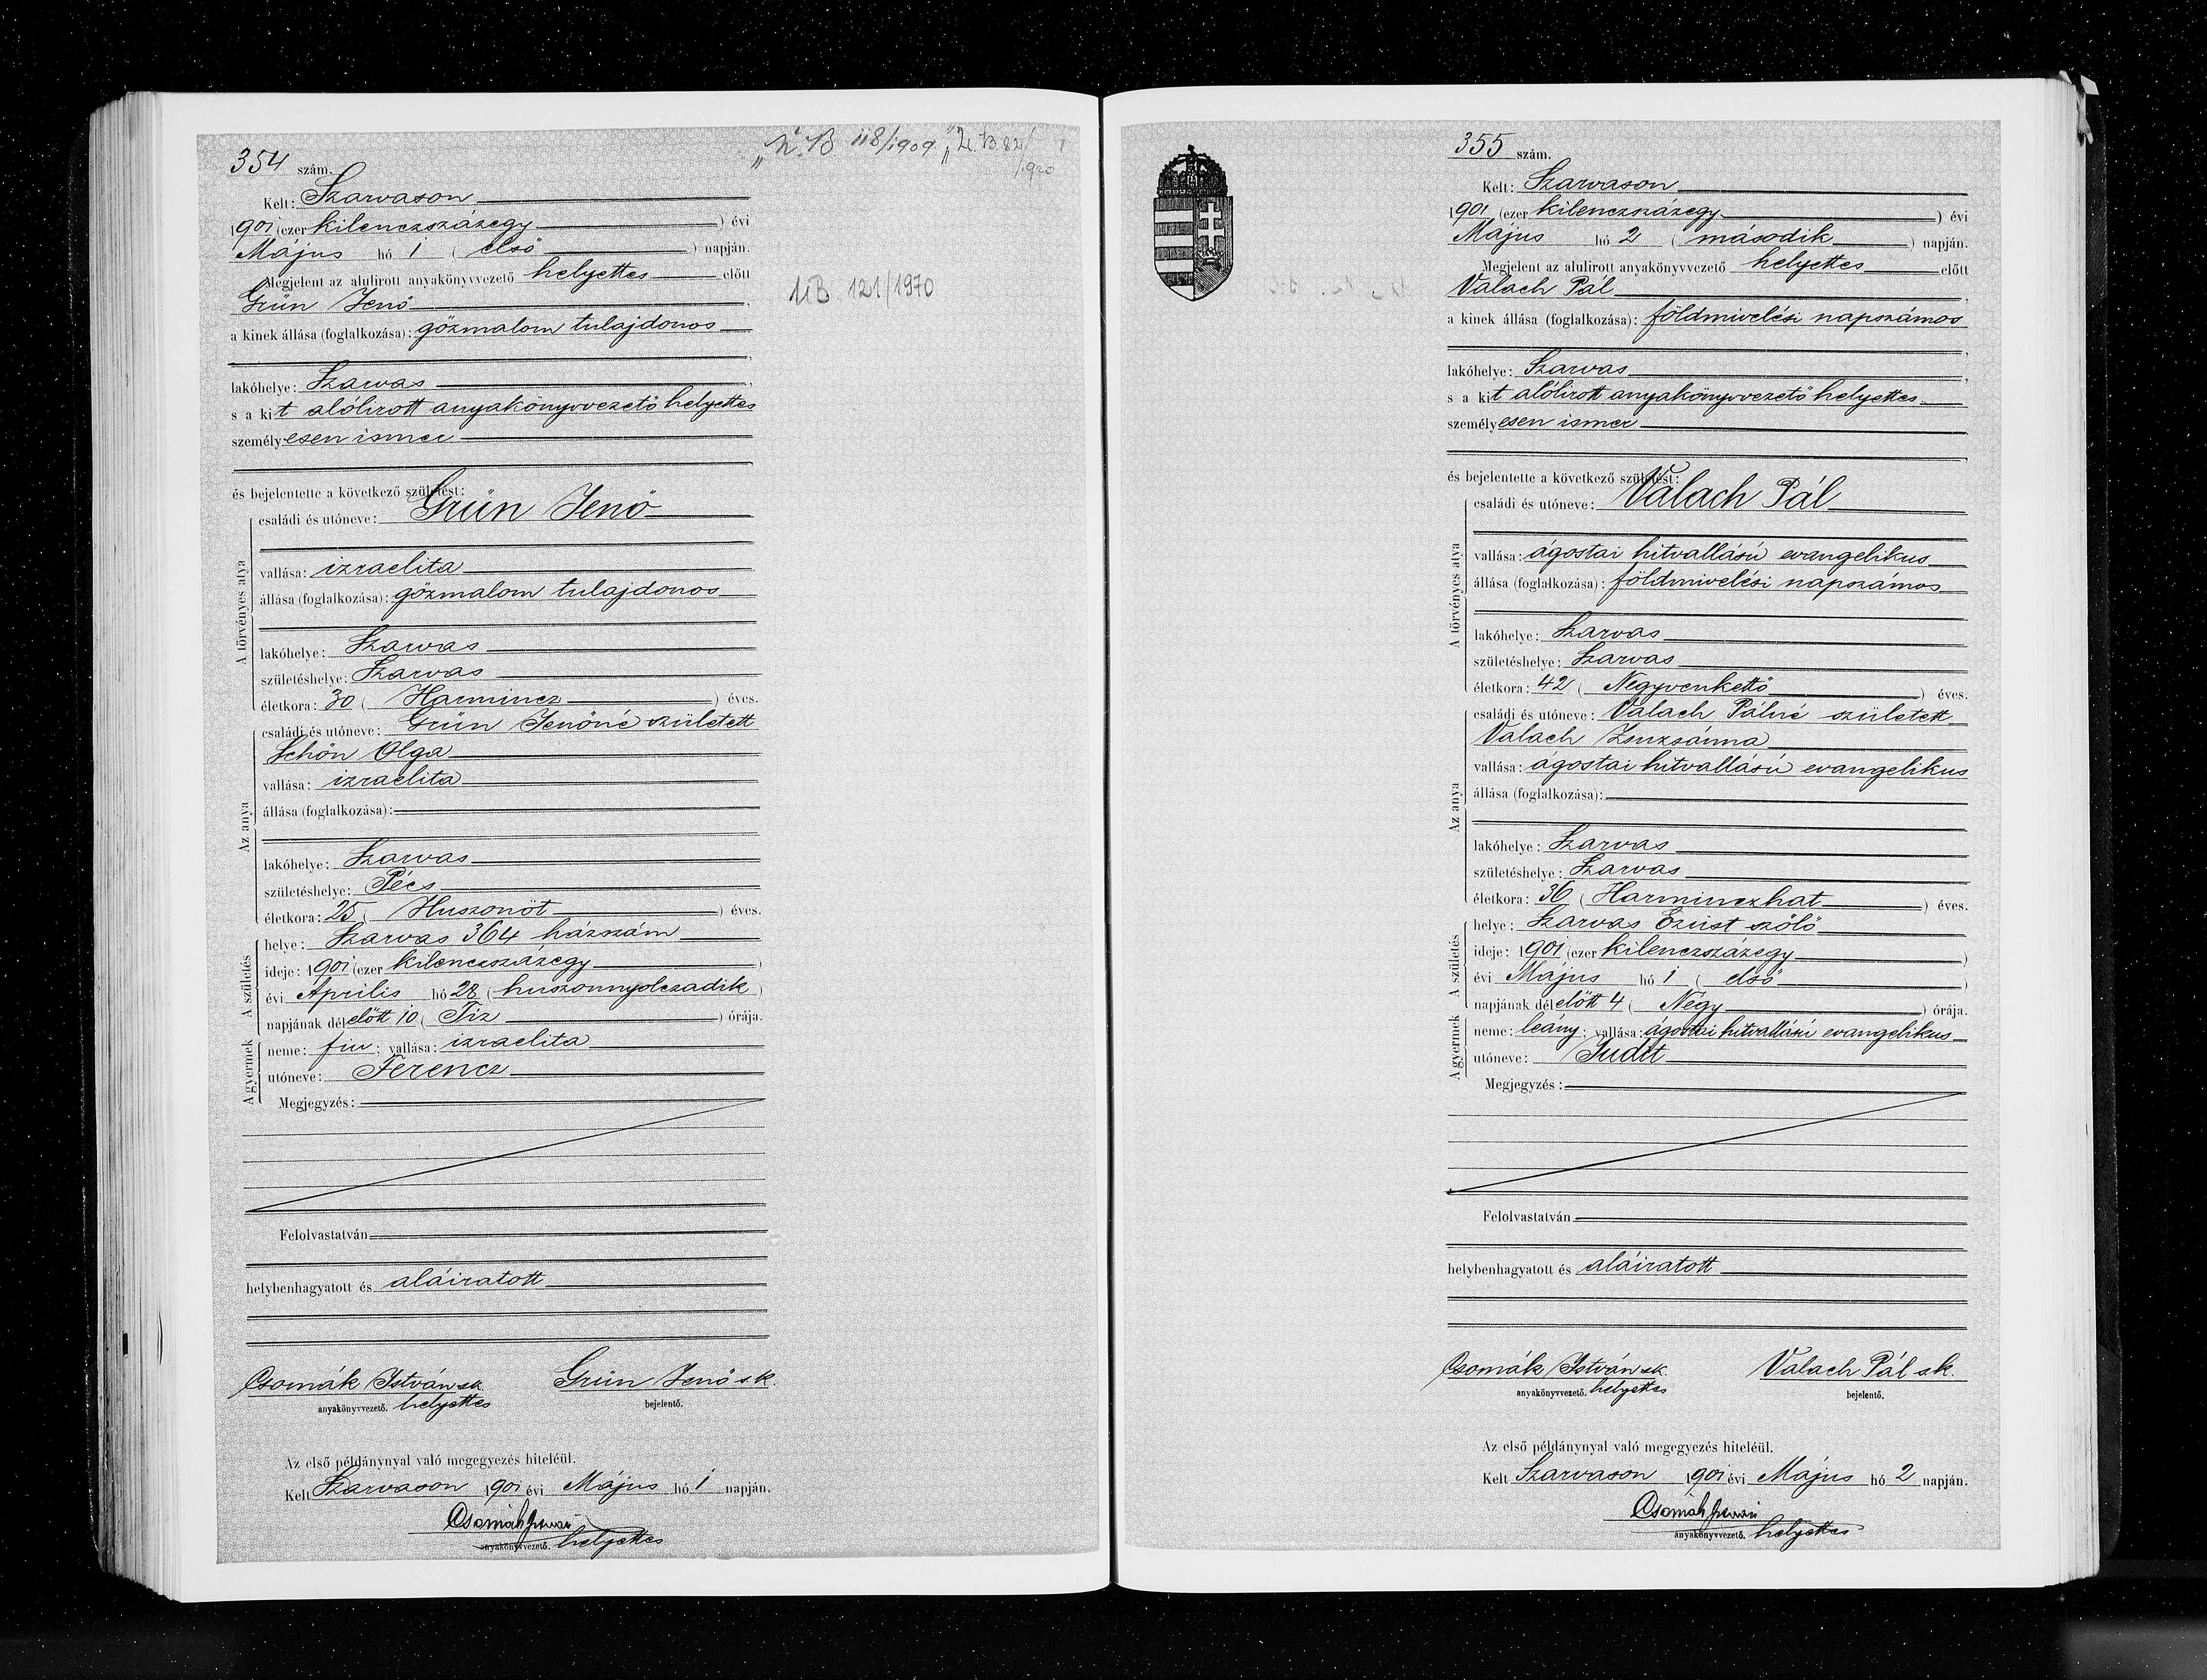 354 szám. „N. B 118/1909 „U. B. 82/1920
Kelt: Szarvason
1901 (ezer kilenczszázegy ) évi
Május hó 1 ( első ) napján.
Megjelent az alulirott anyakönyvvezető helyettes előtt
Grün Jenő,
UB 121/1970
a kinek állása (foglalkozása): gőzmalom tulajdonos
lakóhelye: Szarvas,
s a kit alólirott anyakönyvvezető helyettes
személyesen ismer
és bejelentette a következő születést:
A törvényes atya
családi és utóneve: Grün Jenő
vallása: izraelita
állása (foglalkozása): gőzmalom tulajdonos
lakóhelye: Szarvas
születéshelye: Szarvas
életkora: 30 ( Harmincz ) éves.
Az anya
családi és utóneve: Grün Jenőné született
Schön Olga
vallása: izraelita
állása (foglalkozása):
lakóhelye: Szarvas
születéshelye: Pécs
életkora: 25 ( Huszonöt ) éves.
A születés
helye: Szarvas 364 házszám
ideje: 1901 (ezer kilenczszázegy )
évi Április hó 28 ( huszonnyolczadik )
napjának délelőtt 10 ( Tiz ) órája.
A gyermek
neme: fiu; vallása: izraelita
utóneve: Ferencz
Megjegyzés:
Felolvastatván
helybenhagyatott és aláiratott
Csomák István sk. Grün Jenő sk.
anyakönyvvezető. helyettes bejelentő.
Az első példánynyal való megegyezés hiteléül.
Kelt Szarvason 1901 évi Május hó 1 napján.
Csomák István
anyakönyvvezető. helyettes
355 szám.
Kelt: Szarvason
1901 (ezer kilenczszázegy ) évi
Május hó 2 ( második ) napján.
Megjelent az alulirott anyakönyvvezető helyettes előtt
Valach Pál,
a kinek állása (foglalkozása): földmivelési napszámos
lakóhelye: Szarvas,
s a kit alólirott anyakönyvvezető helyettes
személyesen ismer
és bejelentette a következő születést:
A törvényes atya
családi és utóneve: Valach Pál
vallása: ágostai hitvallású evangelikus
állása (foglalkozása): földmivelési napszámos
lakóhelye: Szarvas
születéshelye: Szarvas
életkora: 42 ( Negyvenkettő ) éves.
Az anya
családi és utóneve: Valach Pálné született
Valach Zsuzsánna
vallása: ágostai hitvallású evangelikus
állása (foglalkozása):
lakóhelye: Szarvas
születéshelye: Szarvas
életkora: 36 ( Harminczhat ) éves.
A születés
helye: Szarvas Ezüst szőlő
ideje: 1901 (ezer kilenczszázegy )
évi Május hó 1 ( első )
napjának délelőtt 4 ( Négy ) órája.
A gyermek
neme: leány; vallása: ágostai hitvallású evangelikus
utóneve: Judit
Megjegyzés:
Felolvastatván
helybenhagyatott és aláiratott
Csomák István sk. Valach Pál sk.
anyakönyvvezető. helyettes bejelentő.
Az első példánynyal való megegyezés hiteléül.
Kelt Szarvason 1901 évi Május hó 2 napján.
Csomák István
anyakönyvvezető. helyettes